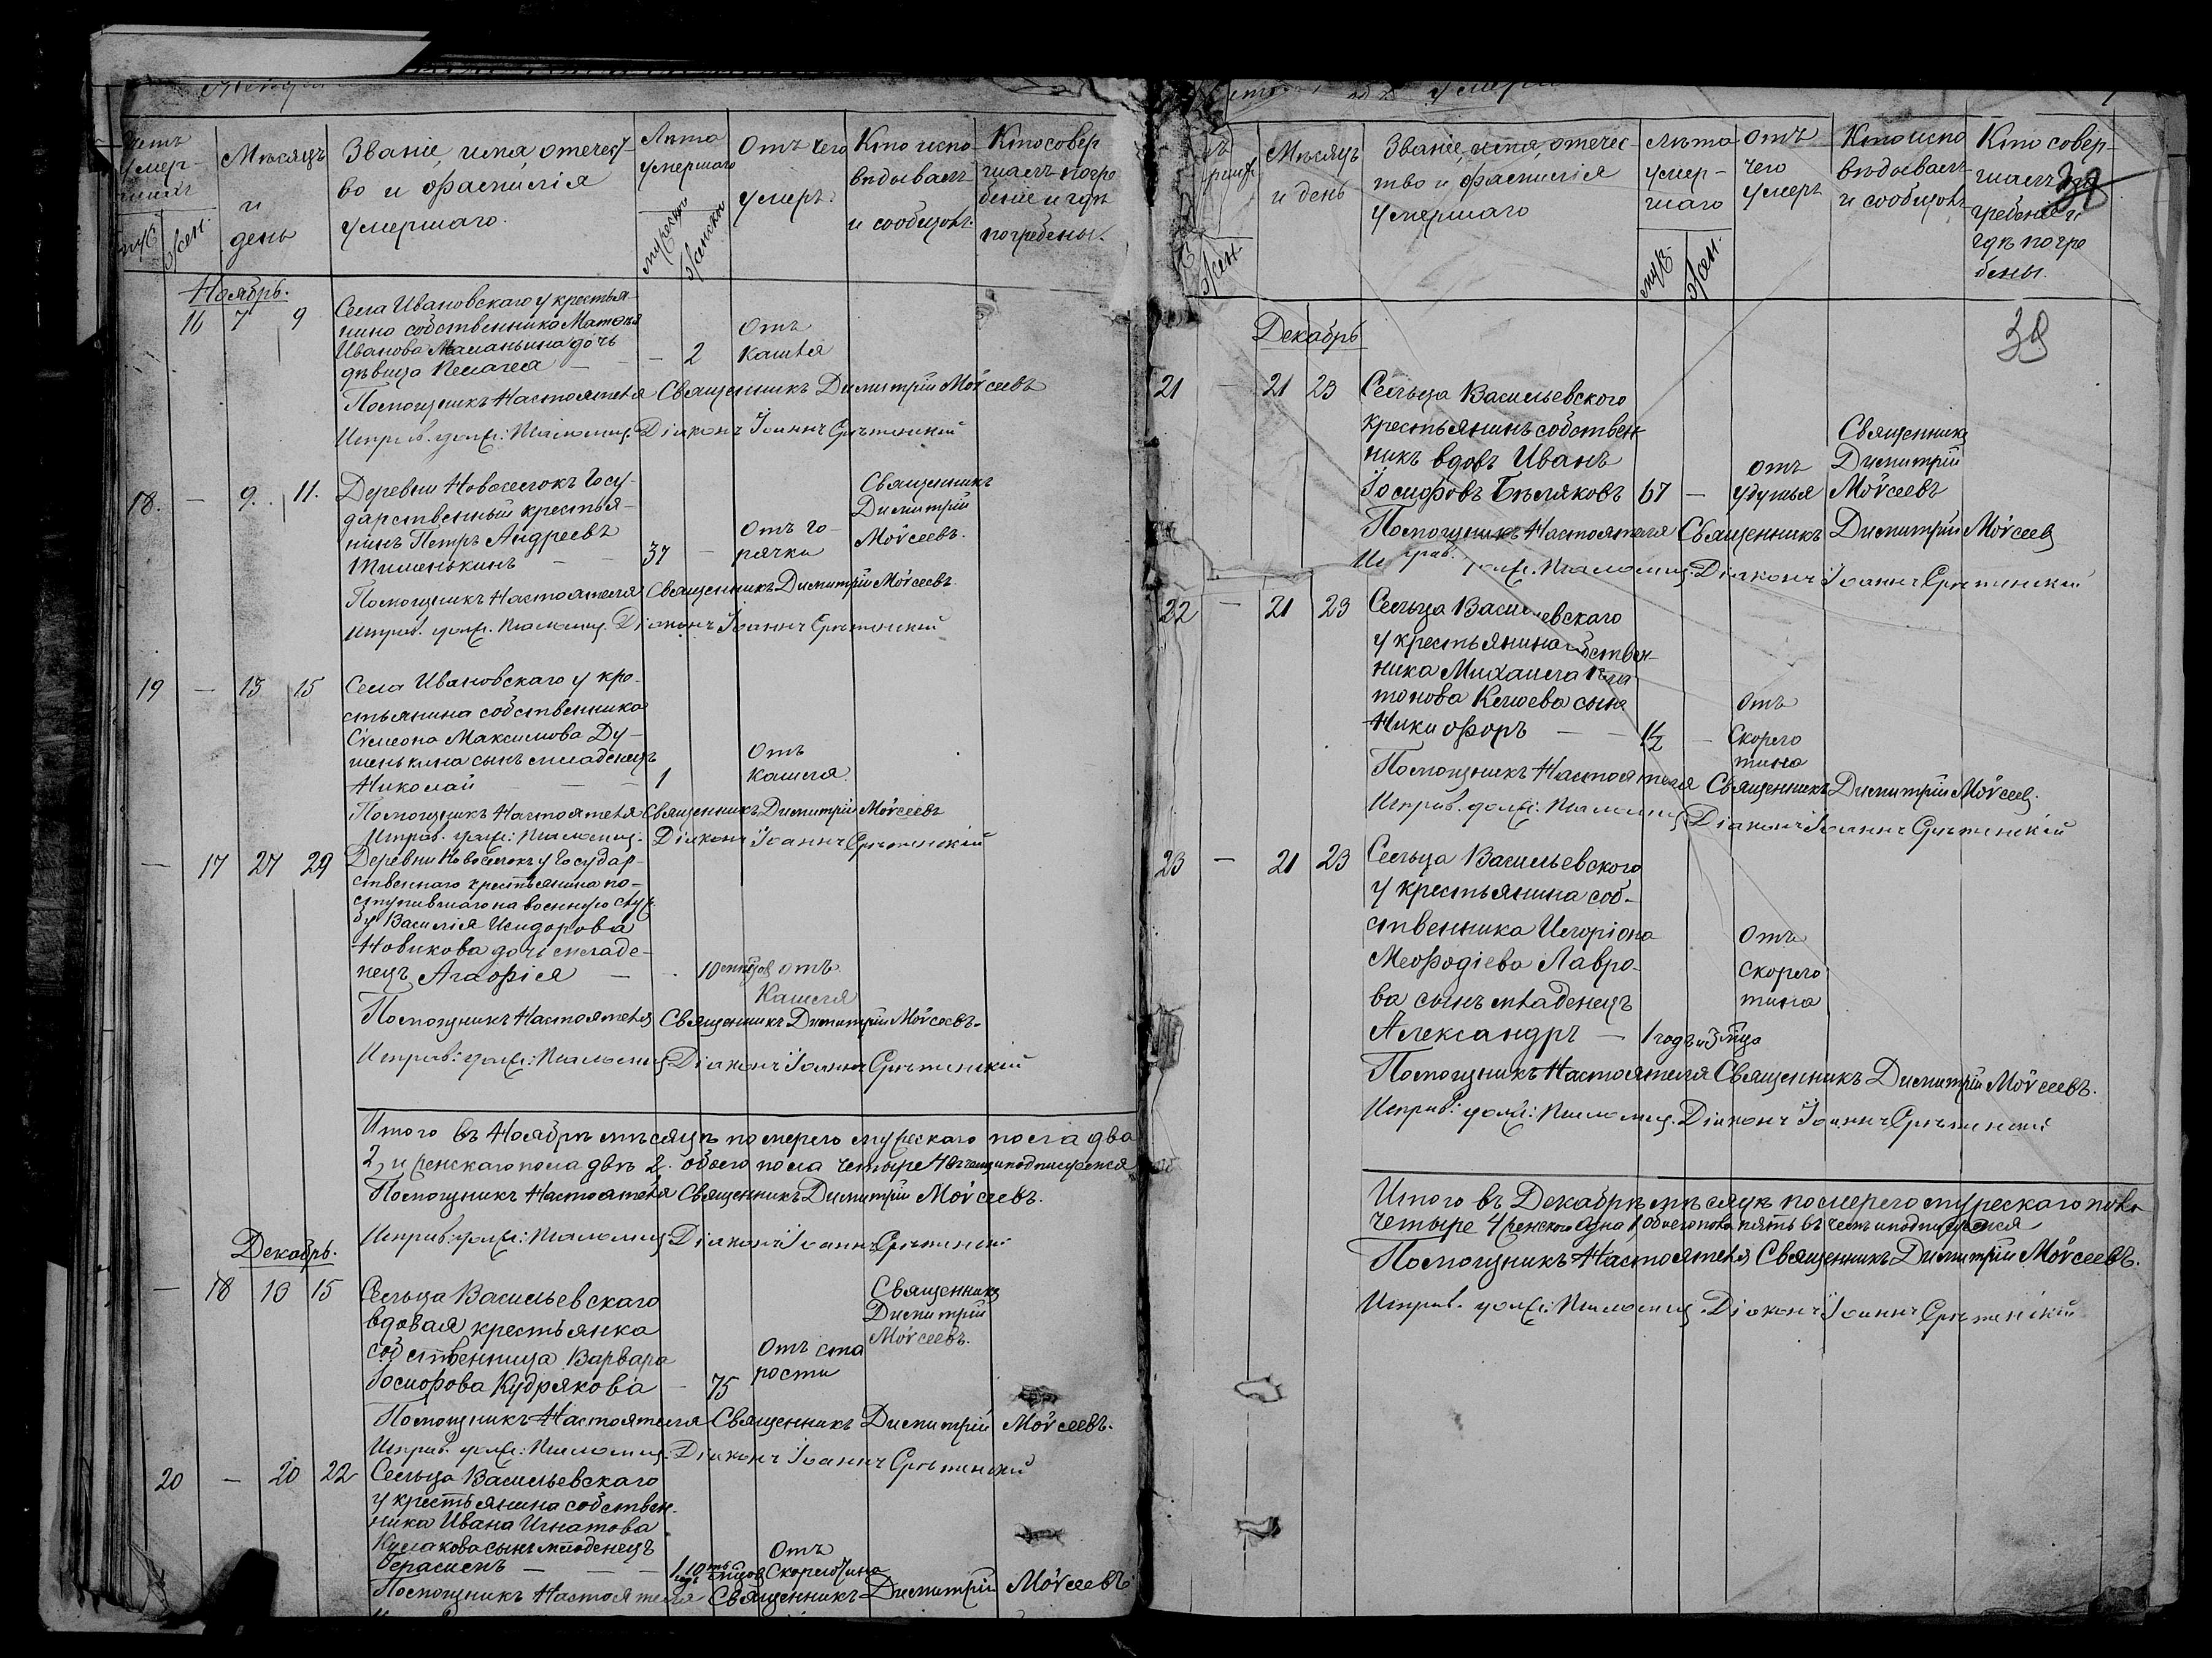 Мѣсяцъ
и
день
Званіе, имя, отечест
во и фамилія
умершаго.
Лѣта
умершаго
мужескаго
женскаго
Отъ чего
умеръ.
Кто испо
вѣдывалъ
и сообщалъ.
Кто совер
шалъ погре
беніе и гдѣ
погребены.
Ноябрь.
16 7 9 Села Ивановскаго у крестья-
нина собственника Матвѣя
Иванова дочь
дѣвица Пелагея — — 2 Отъ кашля
Помощникъ Настоятеля Священникъ Димитрій Моѵсеевъ
Исправ. долж. Псаломщ. Діаконъ Іоаннъ Срѣтенскій
18. — 9. 11. Деревни Новоселокъ Госу-
дарственный крестья-
нинъ Петръ Андреевъ
Тишенькинъ — — 37 — Отъ го-
рячки
Священникъ
Димитрій
Моѵсеевъ.
Помощникъ Настоятеля Священникъ Димитрій Моѵсеевъ.
Исправ. долж. Псаломщ. Діаконъ Іоаннъ Срѣтенскій
19 — 13 15 Села Ивановскаго у кре-
стьянина собственника
Сѵмеона Максимова Ду-
шенькина сынъ младенецъ
Николай — — — 1 Отъ
кашля.
Помощникъ Настоятеля Священникъ Димитрій Моѵсеевъ
Исправ. долж: Псаломщ: Діаконъ Іоаннъ Срѣтенскій
— 17 27 29 Деревни Новоселокъ у Государ-
ственнаго крестьянина по-
ступившаго на военную служ-
бу Василія Исидорова
Новикова дочь младе-
нецъ Агафія — — 10 отъ
Кашля
Помощникъ Настоятеля Священникъ Димитрій Моѵсеевъ.
Исправ: долж: Псаломщ. Діаконъ Іоаннъ Срѣтенскій
Итого въ Ноябрѣ мѣсяцѣ померло мужескаго пола два
2, и женскаго пола двѣ 2. обоего пола четыре 4 въ чемъ и подписуемся
Помощникъ Настоятеля Священникъ Димитрій Моѵсеевъ.
Исправ: долж: Псаломщ. Діаконъ Іоаннъ Срѣтенскій
Декабрь.
— 18 13 15 Сельца Васильевскаго
вдовая крестьянка
собственница Варвара
Іосифова Кудрякова — 75 Отъ ста
рости
Священникъ
Димитрій
Моѵсеевъ.
Помощникъ Настоятеля Священникъ Димитрій Моѵсеевъ.
Исправ. долж: Псаломщ. Діаконъ Іоаннъ Срѣтенскій
20 — 20 22 Сельца Васильевскаго
у крестьянина собствен-
ника Ивана Игнатова
Кулакова сынъ младенецъ
Герасимъ — — — 1 годъ 10 Отъ
Скорлотина
Помощникъ Настоятеля Священникъ Димитрій Моѵсеевъ.
Мѣсяцъ
и день
Званіе, имя, отечес-
тво и фамилія
умершаго
лѣта
умер-
шаго
муж.
жен.
отъ
чего
умеръ
Кто испо
вѣдывалъ
и сообщалъ
Кто совер-
шалъ по
гребеніе и
гдѣ погре
бены.
39
Декабрь
21 — 21 23 Сельца Васильевского
крестьянинъ собствен-
никъ вдовъ Иванъ
Іосифовъ Бѣляковъ 67 — отъ
удушья
Священникъ
Димитрій
Моѵсеевъ
Помощникъ Настоятеля Священникъ Димитрій Моѵсеевъ
Исправ. долж. Псаломщ. Діаконъ Іоаннъ Срѣтенскій
22 — 21 23 Сельца Васильевскаго
у крестьянина собствен-
ника Михаила Пла
тонова сынъ
Никифоръ — — 1½ — Отъ
Скорло
тина
Помощникъ Настоятеля Священникъ Димитрій Моѵсеевъ.
Исправ. долж: Псаломщ. Діаконъ Іоаннъ Срѣтенскій
23 — 21 23 Сельца Васильевского
у крестьянина соб-
ственника Иларіона
Мефодіева Лавро-
ва сынъ младенецъ
Александръ — 1 годъ и 3 м͠ца
Отъ
скорло
тина
Помощникъ Настоятеля Священникъ Димитрій Моѵсеевъ.
Исправ: долж: Псаломщ. Діаконъ Іоаннъ Срѣтенскій
Итого въ Декабрѣ мѣсяцѣ померло мужескаго пола
четыре 4 женскаго одна 1, обоего пола пять въ чемъ и подписуемся
Помощникъ Настоятеля Священникъ Димитрій Моѵсеевъ.
Исправ. долж: Псаломщ. Діаконъ Іоаннъ Срѣтенскій